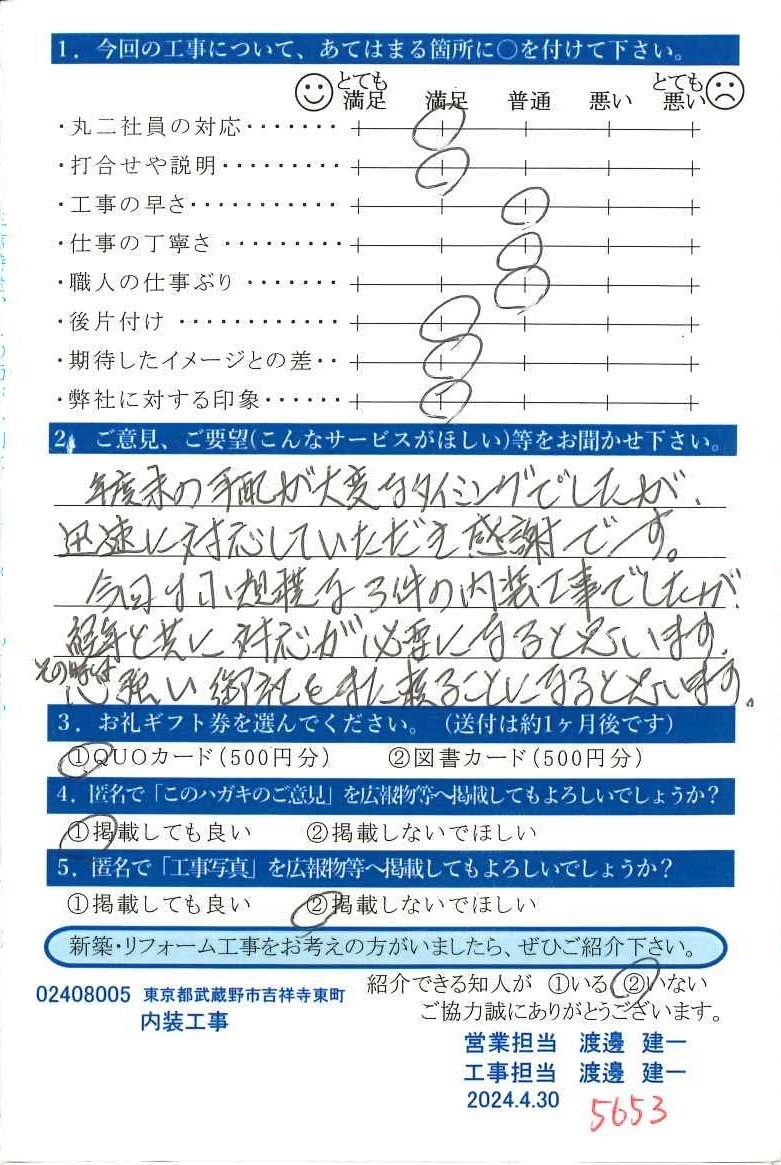 1．今回の工事について、あてはまる箇所に○を付けて下さい。
とても満足 満足 普通 悪い とても悪い
・丸二社員の対応・・・・・・・
・打合せや説明・・・・・・・・・
・工事の早さ・・・・・・・・・・・
・仕事の丁寧さ・・・・・・・・・
・職人の仕事ぶり・・・・・・・
・後片付け・・・・・・・・・・・・
・期待したイメージとの差・・
・弊社に対する印象・・・・・・
2．ご意見、ご要望(こんなサービスがほしい)等をお聞かせ下さい。
年度末の手配が大変なタイミングでしたが、
迅速に対応していただき感謝です。
今回は小規模な3件の内装工事でしたが、
経年と共に対応が必要になると思います。
その時は
心強い御社をまた頼ることになると思います。
3．お礼ギフト券を選んでください。（送付は約1ヶ月後です）
①QUOカード(500円分) ②図書カード(500円分)
4．匿名で「このハガキのご意見」を広報物等へ掲載してもよろしいでしょうか？
①掲載しても良い ②掲載しないでほしい
5．匿名で「工事写真」を広報物等へ掲載してもよろしいでしょうか？
①掲載しても良い ②掲載しないでほしい
新築・リフォーム工事をお考えの方がいましたら、ぜひご紹介下さい。
紹介できる知人が ①いる ②いない
02408005 東京都武蔵野市吉祥寺東町
ご協力誠にありがとうございます。
内装工事
営業担当 渡邊 建一
工事担当 渡邊 建一
2024.4.30
5653